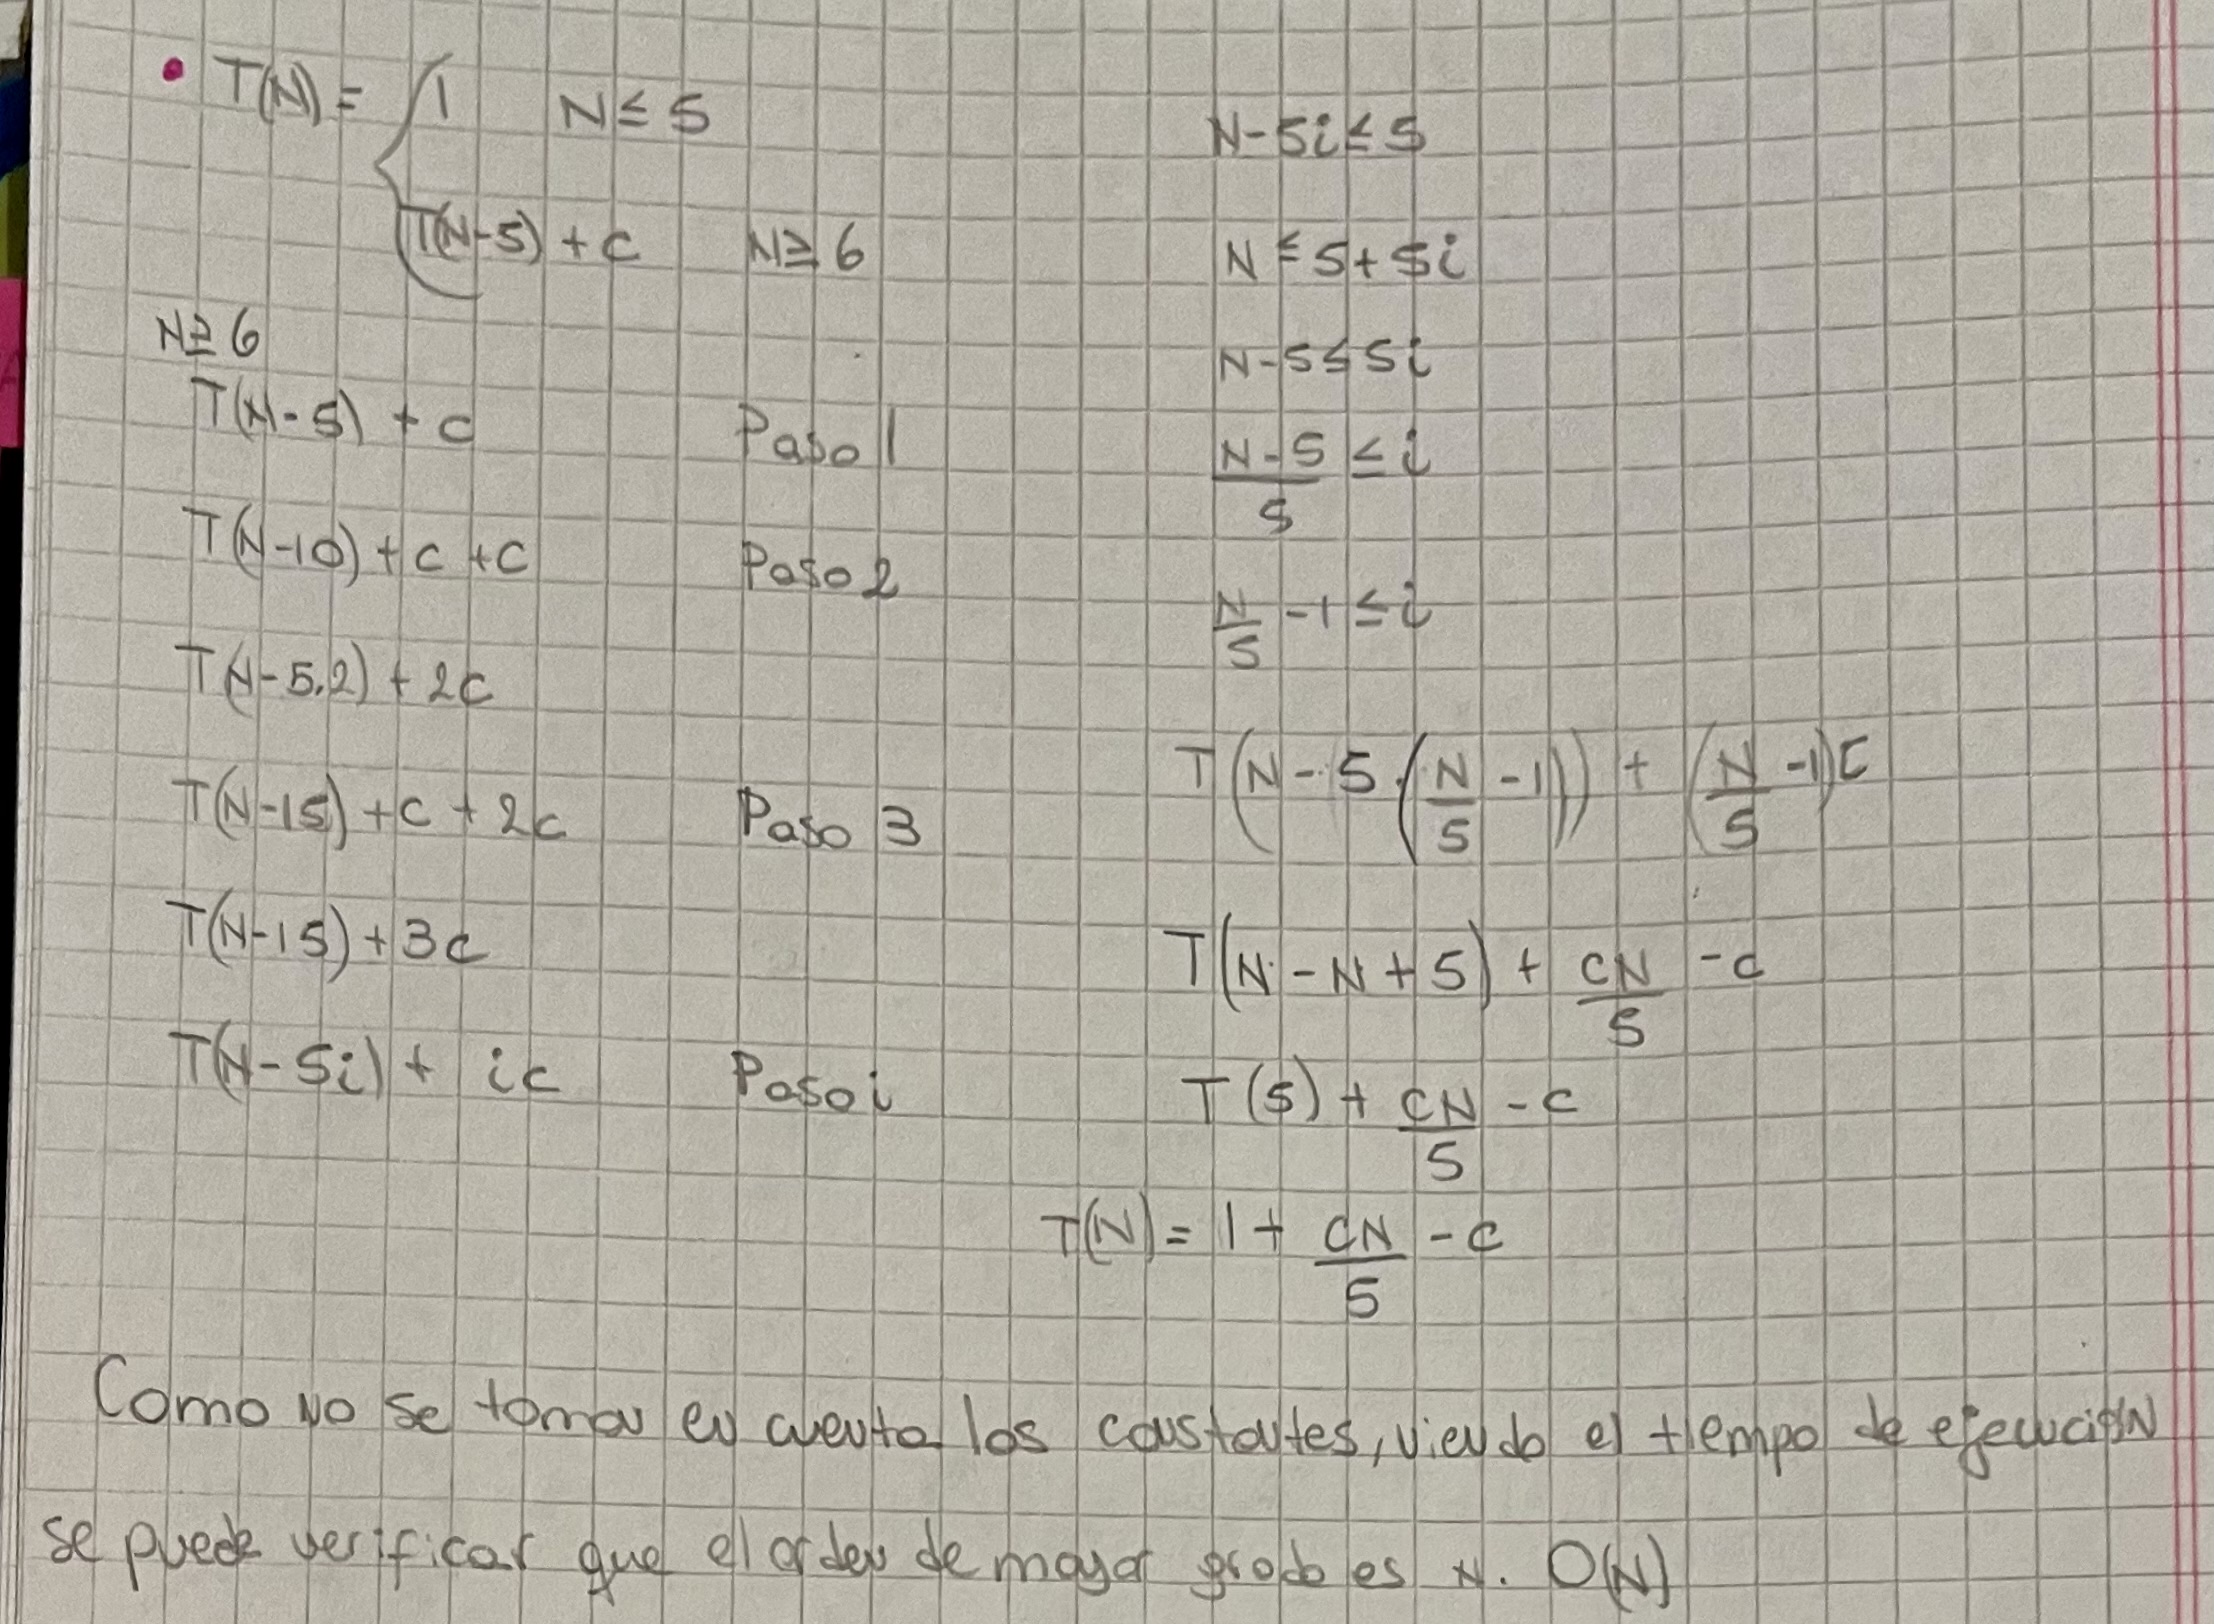 • T(N) = { 1 N ≤ 5
T(N-5) + c N ≥ 6
N ≥ 6
T(N-5) + c Paso 1
T(N-10) + c + c Paso 2
T(N-5.2) + 2c
T(N-15) + c + 2c Paso 3
T(N-15) + 3c
T(N-5i) + ic Paso i
N-5i ≤ 5
N ≤ 5+5i
N-5 ≤ 5i
(N-5)/5 ≤ i
N/5 -1 ≤ i
T(N-5.(N/5 -1)) + (N/5 -1)c
T(N-N+5) + cN/5 -c
T(5) + cN/5 -c
T(N) = 1 + cN/5 -c
Como no se toman en cuenta las constantes, viendo el tiempo de ejecución
se puede verificar que el orden de mayor grado es N. O(N)